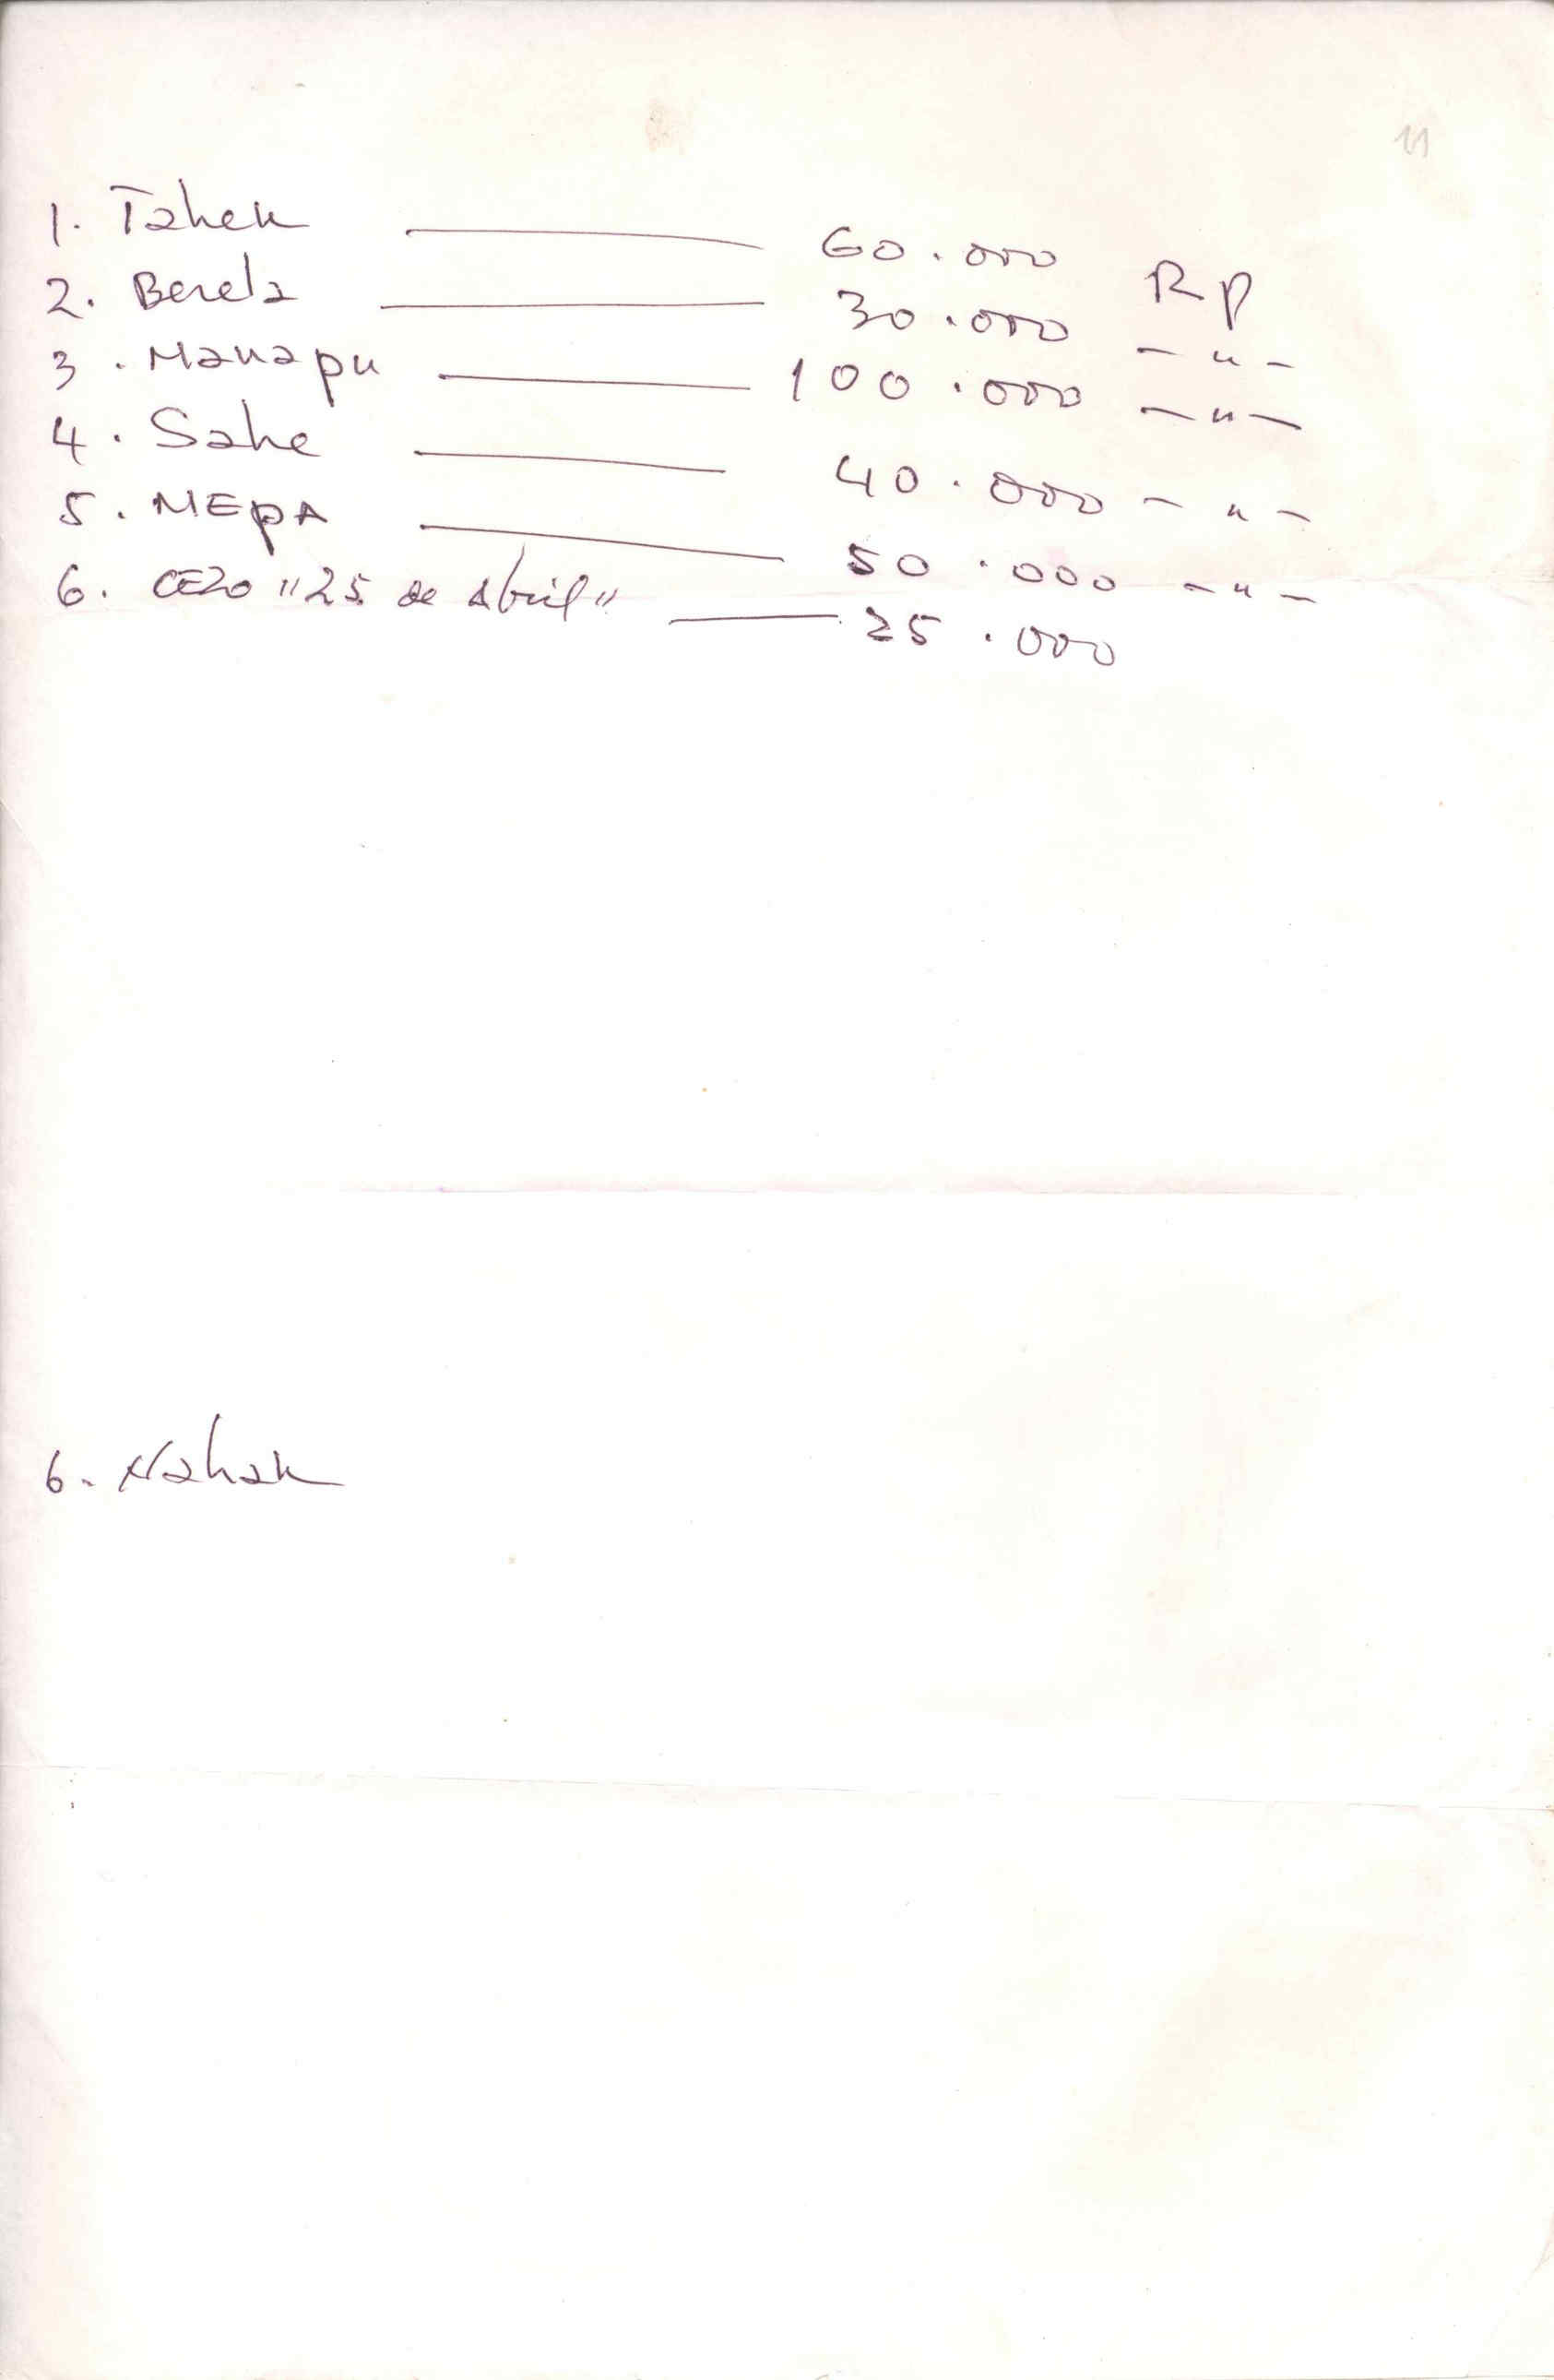 11
1. Taheu ——— 60.000 Rp
2. Berela ——— 30.000 — " —
3. Manapu ——— 100.000 — " —
4. Sahe ——— 40.000 — " —
5. MEPA ——— 50.000 — " —
6. "25 de Abril" ——— 25.000
6. Nahak